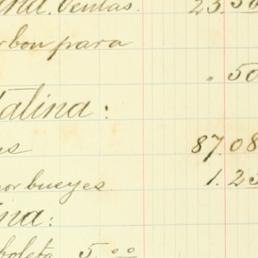 ventas. 23.50
rbon para
. 50
talina:
s 87.08
por bueyes. 1.25
na:
boleta 5.00